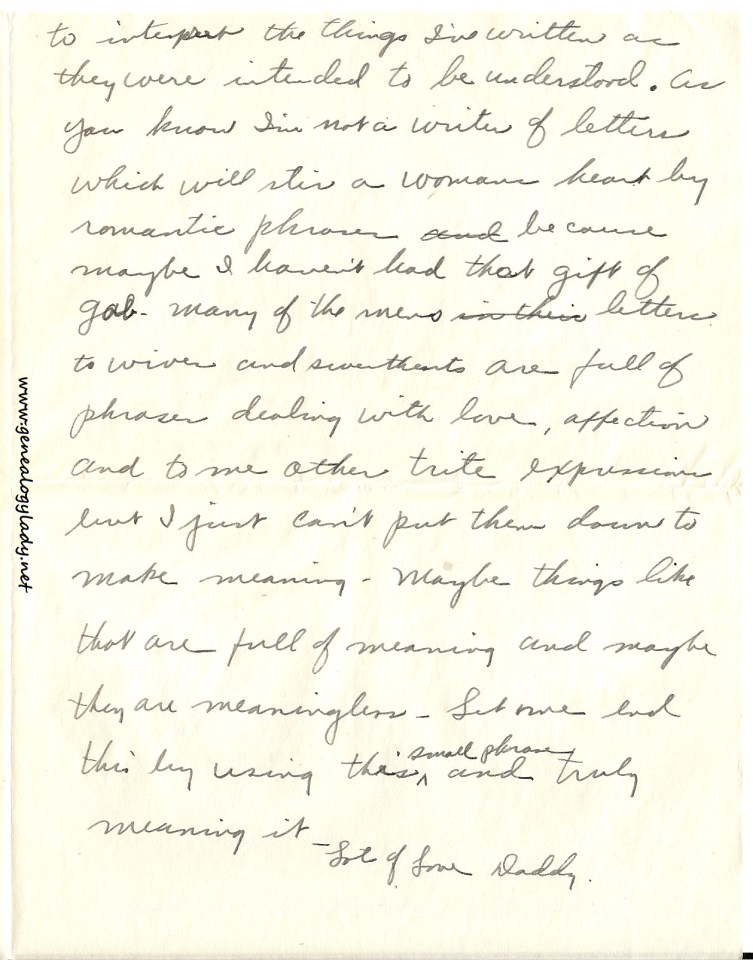 to interpret the things I've written as
they were intended to be understood. As
you know I'm not a writer of letters
which will stir a womans heart by
romantic phrases and because
maybe I haven't had that gift of
gab - many of the mens in their letters
to wives and sweethearts are full of
phrases dealing with love, affection
and to me other trite expressions
but I just can't put them down to
make meaning - Maybe things like
that are full of meaning and maybe
they are meaningless - Let me end
this by using this small phrase and truly
meaning it -
Lots of Love Daddy.
www.genealogylady.net